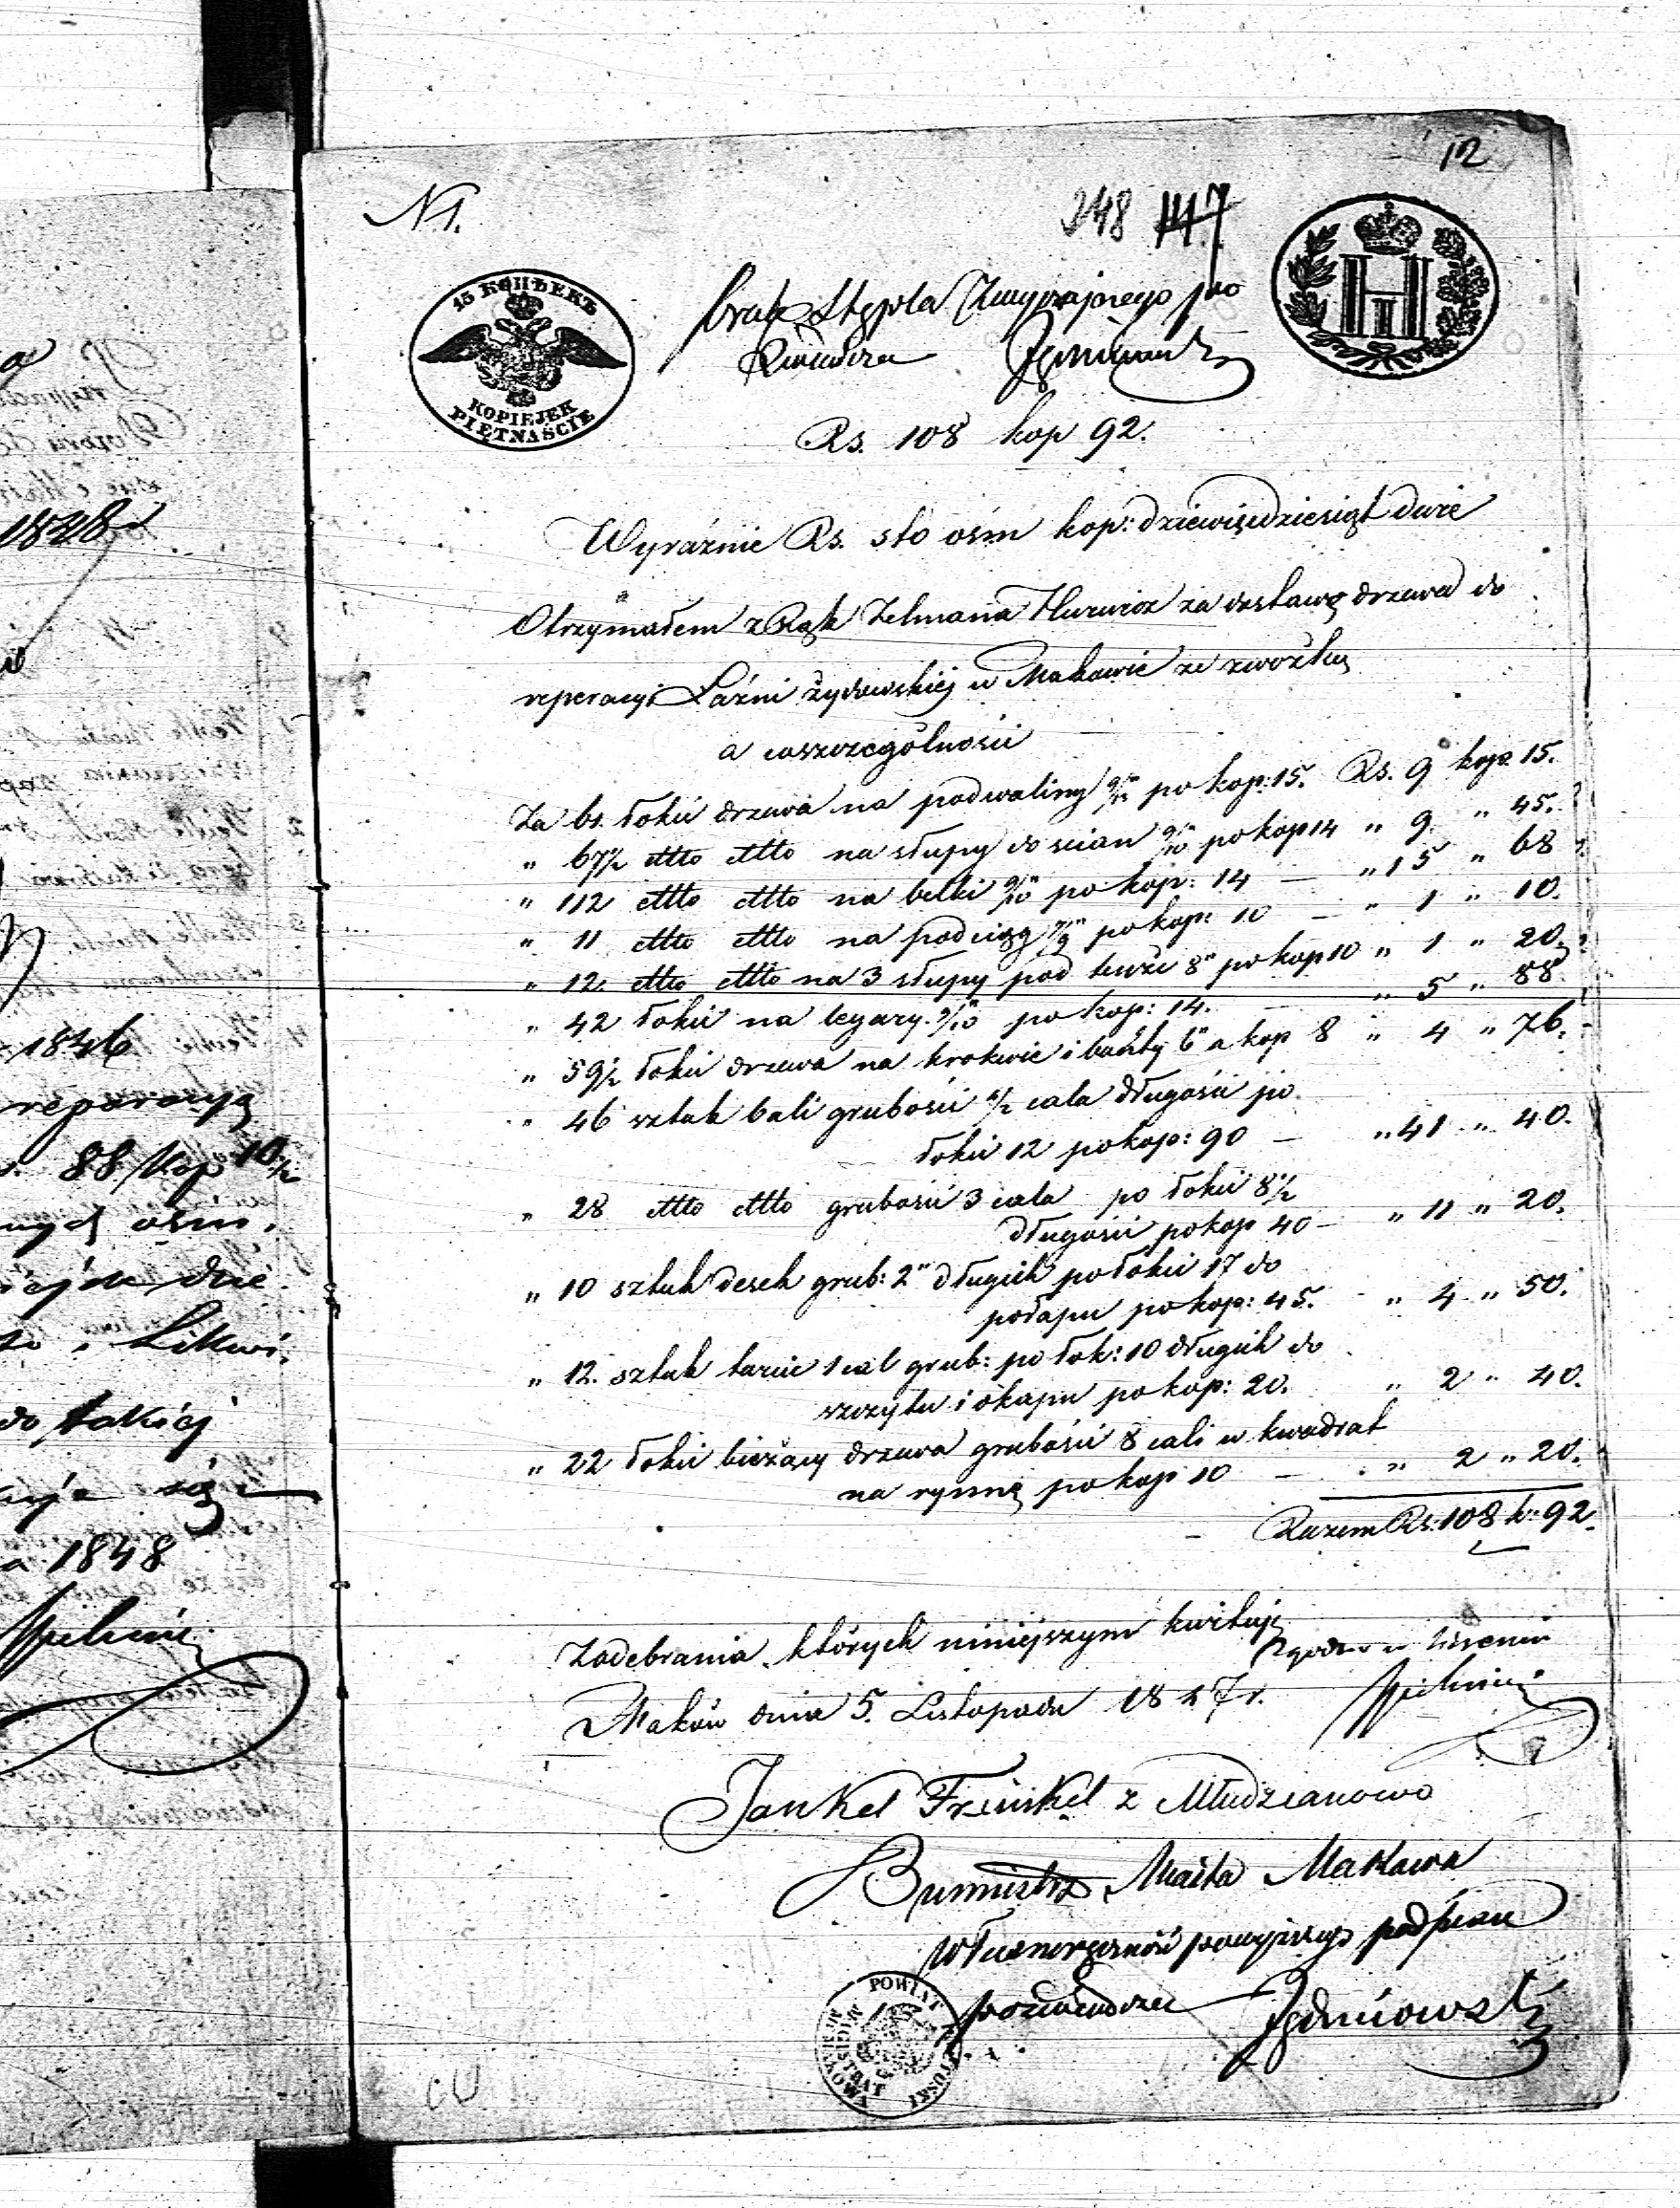 12
N 1.
248 147
15 КОПѢЕКЪ
KOPIEJEK
PIĘTNAŚCIE
H
I
brak Stępla Zwyczajnego po
świadcza
Rs. 108 kop 92.
Wyraźnie Rs. sto ośm kop: dziewięćdziesiąt dwie
Otrzymałem z Rąk Zelmana Hurwicz za dostawę drzewa do
reperacyi Łaźni żydowskiej w Makowie ze zwózką
a w szczególności
Za 61. łokci drzewa na podwaliny 9/12 po kop: 15. Rs. 9 kop. 15.
" 67½ dtto dtto na słupy do ścian 9/10 po kop 14 " 9. " 45.
" 112 dtto dtto na belki 9/10 po kop: 14 — " 15 " 68
" 11 dtto dtto na podciąg 7/9 po kop: 10 — " 1 " 10.
" 12. dtto dtto na 3 słupy pod 8" po kop 10 " 1 " 20.
" 42 łokci na legary 9/10 po kop: 14. — " 5 " 88.
" 59½ łokci drzewa na krokwie i banty 6" a kop 8 " 4 " 76.
" 46 sztuk bali grubości cala długości po
łokci 12 po kop: 90 — " 41 " 40.
" 28 dtto dtto grubości 3 cala po łokci 8½
długości po kop 40 — " 11 " 20.
" 10 sztuk desek grub: 2" długich po łokci 17 do
połapu po kop: 45. " 4 " 50.
" 12. sztuk tarcic 1 cal grub: po łok: 10 długich do
szczytu i okapu po kop: 20. " 2 " 40.
" 22 łokci bieżący drzewa grubości 8 cali w kwadrat
na rynnę po kop 10 — " 2 " 20.
Razem Rs: 108 k: 92.
Z odebrania których niniejszym kwituję
Maków dnia 5. Listopada 1847 r.
Jankel Frenkel z Młudzianowo
Burmistrz Miasta Makowa
Własnoręczność powyższego podpisu
poświadcza
POWIAT
MAGISTRAT
1828
1846
reperacyą
88 Kop 10½
ośm
dwie
do takiej
się
1848